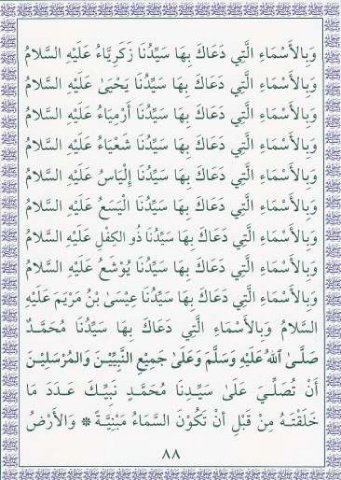 وَبِالأَسْمَاءِ الَّتِي دَعَاكَ بِهَا سَيِّدُنَا زَكَرِيَّاءُ عَلَيْهِ السَّلامُ
وَبِالأَسْمَاءِ الَّتِي دَعَاكَ بِهَا سَيِّدُنَا يَحْيَىٰ عَلَيْهِ السَّلامُ
وَبِالأَسْمَاءِ الَّتِي دَعَاكَ بِهَا سَيِّدُنَا أَرْمِيَاءُ عَلَيْهِ السَّلامُ
وَبِالأَسْمَاءِ الَّتِي دَعَاكَ بِهَا سَيِّدُنَا شَعْيَاءُ عَلَيْهِ السَّلامُ
وَبِالأَسْمَاءِ الَّتِي دَعَاكَ بِهَا سَيِّدُنَا إِلْيَاسُ عَلَيْهِ السَّلامُ
وَبِالأَسْمَاءِ الَّتِي دَعَاكَ بِهَا سَيِّدُنَا الْيَسَعُ عَلَيْهِ السَّلامُ
وَبِالأَسْمَاءِ الَّتِي دَعَاكَ بِهَا سَيِّدُنَا ذُو الكِفْلِ عَلَيْهِ السَّلامُ
وَبِالأَسْمَاءِ الَّتِي دَعَاكَ بِهَا سَيِّدُنَا يُوْشَعُ عَلَيْهِ السَّلامُ
وَبِالأَسْمَاءِ الَّتِي دَعَاكَ بِهَا سَيِّدُنَا عِيْسَىٰ بْنُ مَرْيَمَ عَلَيْهِ
السَّلامُ وَبِالأَسْمَاءِ الَّتِي دَعَاكَ بِهَا سَيِّدُنَا مُحَمَّدٌ
صَلَّىٰ اللهُ عَلَيْهِ وَسَلَّمَ وَعَلَىٰ جَمِيْعِ النَّبِيِّيْنَ وَالمُرْسَلِيْنَ
أَنْ تُصَلِّيَ عَلَىٰ سَيِّدِنَا مُحَمَّدٍ نَبِيِّكَ عَدَدَ مَا
خَلَقْتَهُ مِنْ قَبْلِ أَنْ تَكُوْنَ السَّمَاءُ مَبْنِيَّةً ❁ وَالأَرْضُ
٨٨